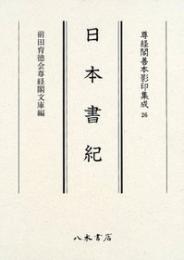 尊経閣善本影印集成 26
日本書紀
前田育徳会尊経閣文庫編
八木書店